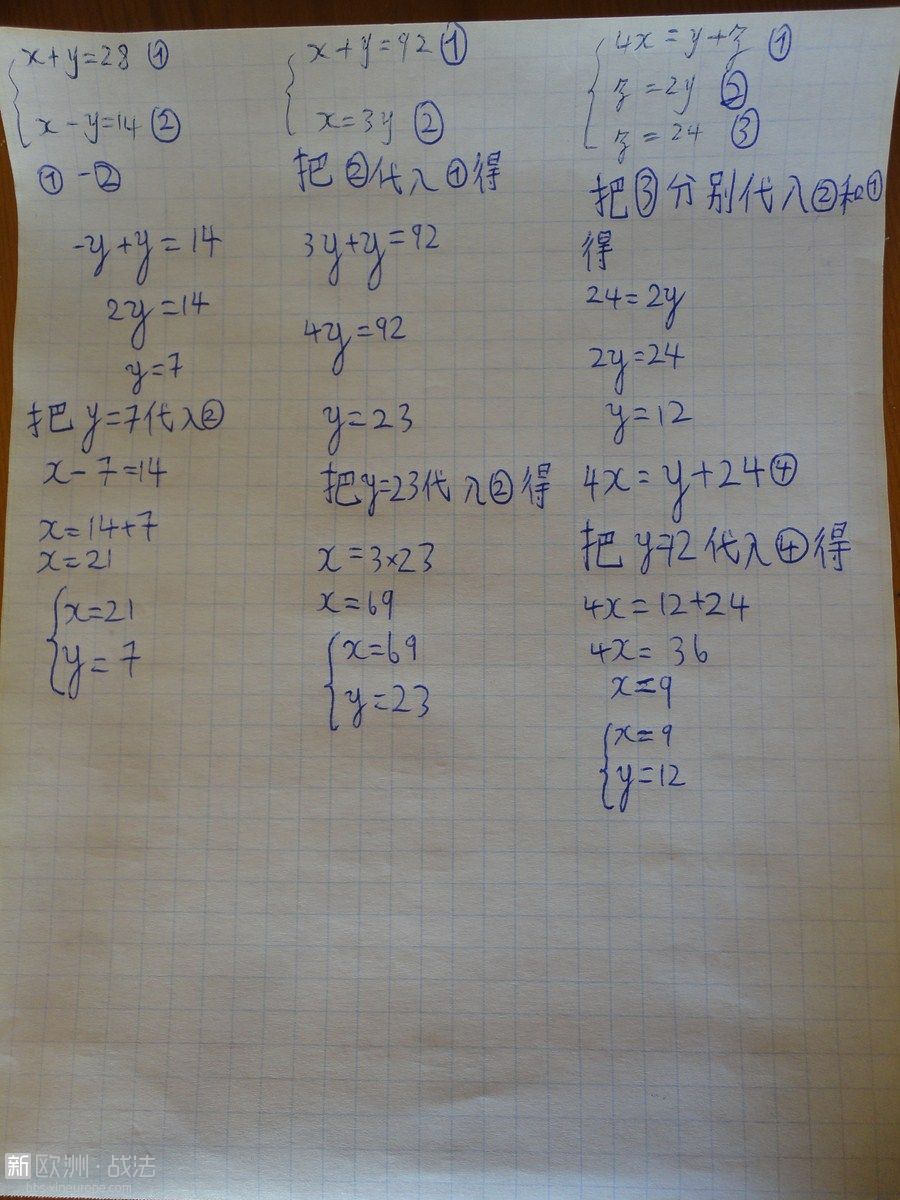 x+y=28 ①
x-y=14 ②
①-②
-y+y=14
2y=14
y=7
把y=7代入②
x-7=14
x=14+7
x=21
x=21
y=7
x+y=92 ①
x=3y ②
把②代入①得
3y+y=92
4y=92
y=23
把y=23代入②得
x=3×23
x=69
x=69
y=23
4x=y+z ①
z=2y ②
z=24 ③
把③分别代入②和①
得
24=2y
2y=24
y=12
4x=y+24④
把y=12代入④得
4x=12+24
4x=36
x=9
x=9
y=12
新欧洲·战法
bbs.xineurope.com